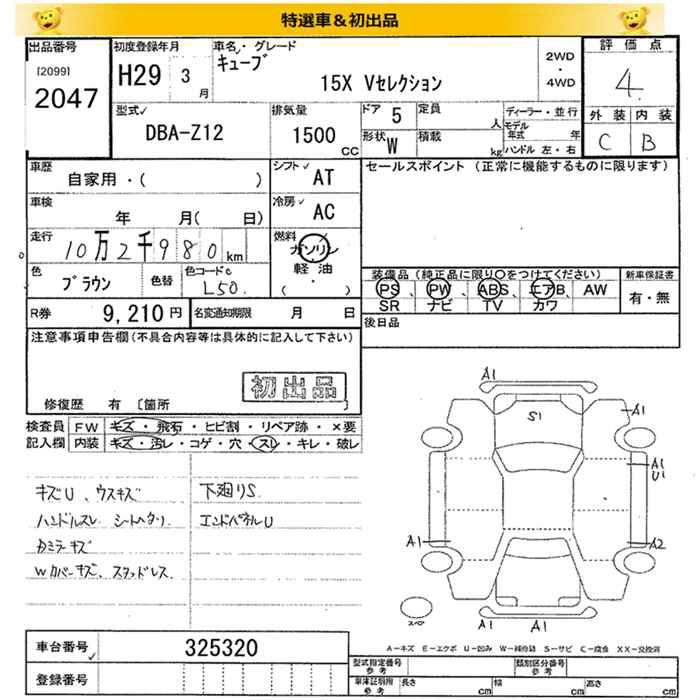 特選車&初出品
出品番号 初度登録年月 車名・グレード 2WD・4WD 評価点
[2099] H29 3月 キューブ 4
2047 15X Vセレクション
外装 内装
型式 排気量 ドア 5 定員 人 ディーラー・並行 C B
DBA-Z12 1500 CC 形状 W 積載 kg モデル年式 年
ハンドル 左・右
車歴 シフト AT セールスポイント (正常に機能するものに限ります)
自家用・( )
車検 年 月( 日) 冷房 AC
走行 10万2千980km 燃料 ガソリン
軽油
( ・ )
色 ブラウン 色替 色コード L50.
装備品(純正品に限り〇をつけてください) 新車保証書
PS、PW、ABS、エアB、AW 有・無
SR ナビ TV カワ
R券 9,210円 名変通知期限 月 日 後日品
注意事項申告欄(不具合内容等は具体的に記入して下さい)
初出品
修復歴 有 〔箇所
検査員 FW キズ・飛石・ヒビ割・リペア跡・×要
記入欄 内装 キズ・汚レ・コゲ・穴・スレ・キレ・破レ
キズU、ウスキズ 下廻りS
ハンドルスレ シートヘタリ エンドパネルU
カミラーキズ
Wカバーキズ、スタッドレス
A1
S1
A1
A1
U1
A1
A2
A1 A1
スペア
A-キズ E-エクボ U-凹み W-補修跡 S-サビ C-腐食 XX-交換済
車台番号 325320
型式指定番号 参考 類別区分番号 参考
登録番号
車庫証明用 参考 長さ cm 幅 cm 高さ cm